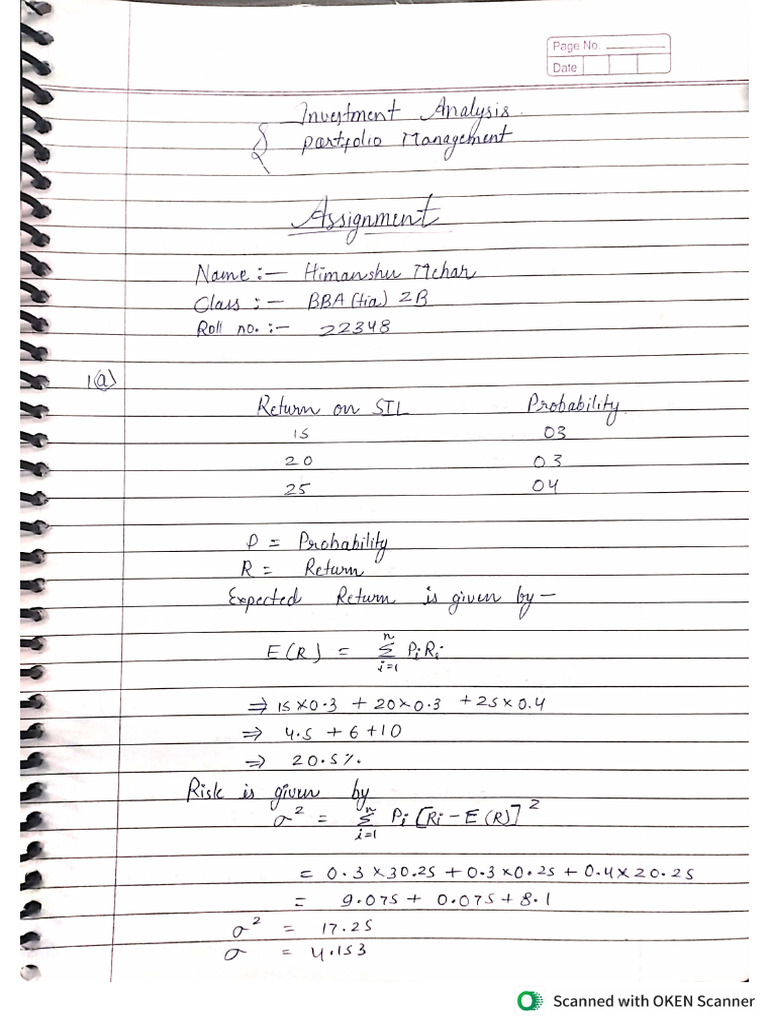 Page No.
Date
Investment Analysis
& Portfolio Management
Assignment
Name :- Himanshu Mehar
Class :- BBA (tia) 2B
Roll no. :- 22348
1(a)
Return on STL Probability
15 03
20 03
25 04
P = Probability
R = Return
Expected Return is given by -
E(R) = n Σ i=1 PiRi
⇒ 15×0.3 + 20×0.3 + 25×0.4
⇒ 4.5 + 6 + 10
⇒ 20.5%
Risk is given by
σ² = n Σ i=1 Pi [Ri - E(R)]²
= 0.3×30.25 + 0.3×0.25 + 0.4×20.25
= 9.075 + 0.075 + 8.1
σ² = 17.25
σ = 4.153
Scanned with OKEN Scanner